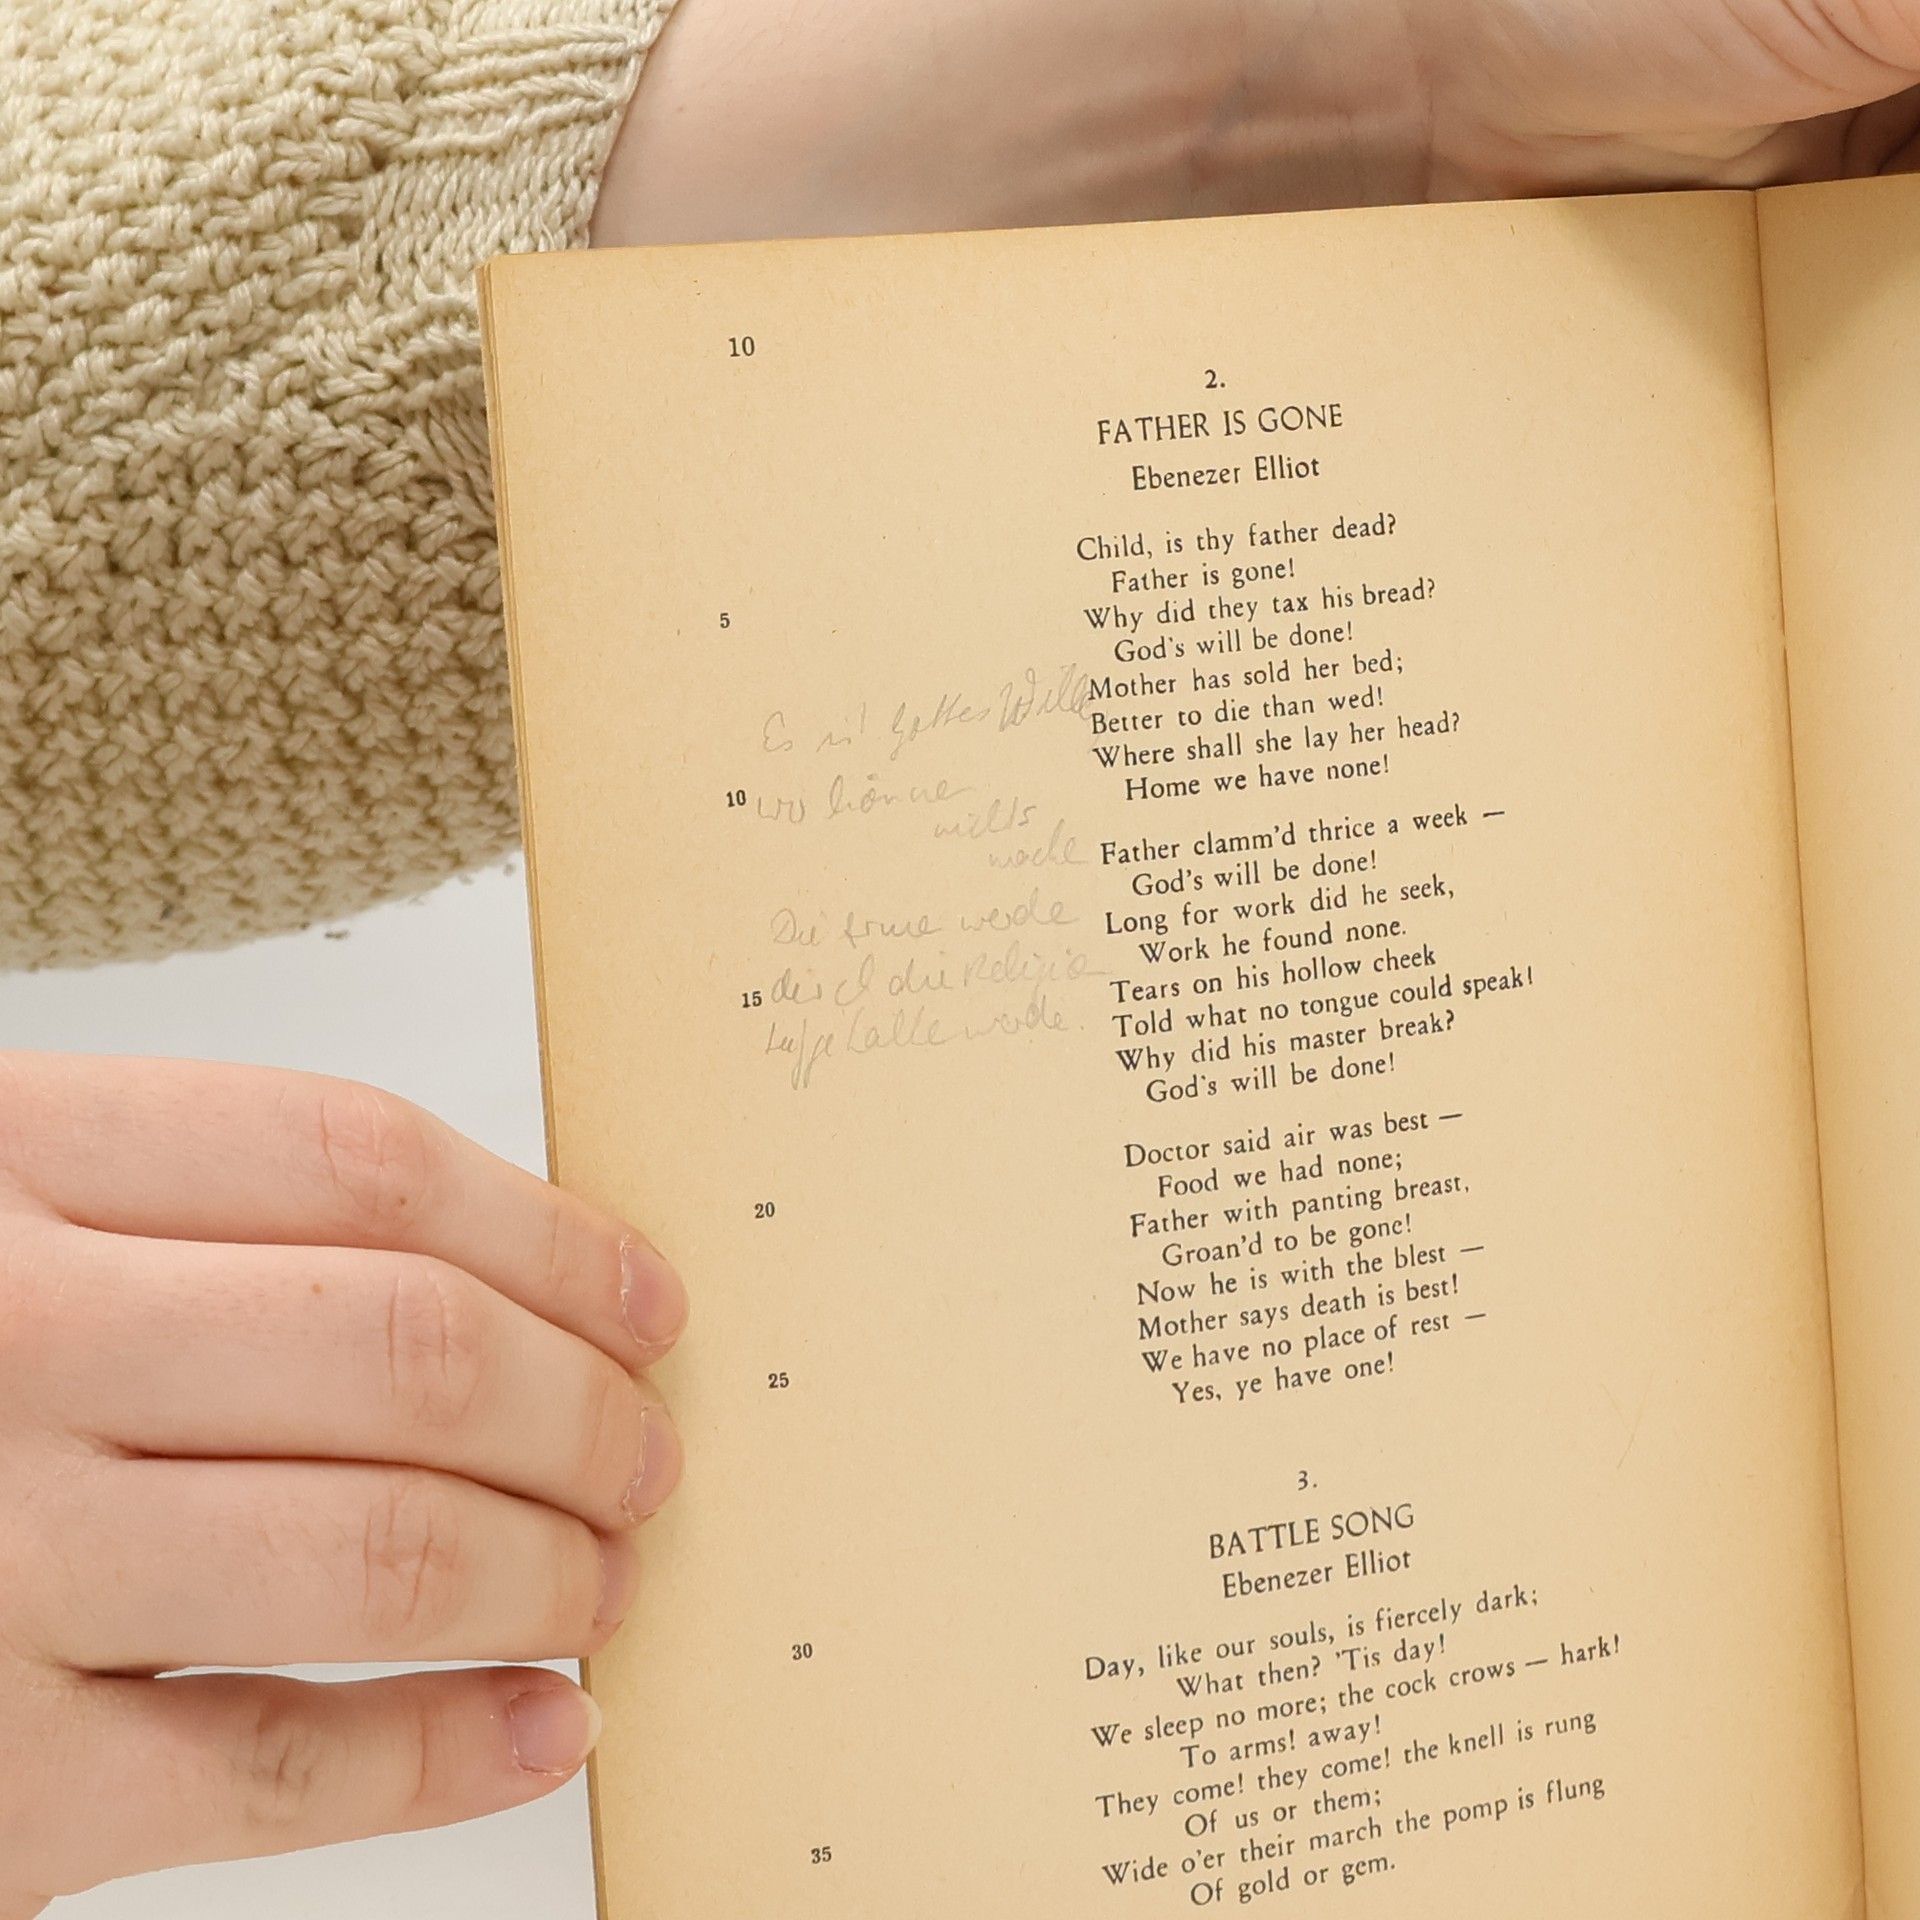 10
2.
FATHER IS GONE
Ebenezer Elliot
Child, is thy father dead?
Father is gone!
Why did they tax his bread?
5
God's will be done!
Mother has sold her bed;
Better to die than wed!
Where shall she lay her head?
Home we have none!
Es ist Gottes Wille
wir könne
nichts
mache
Die Arme werde
durch die Religio
aufgehalte werde.
10
Father clamm'd thrice a week —
God's will be done!
Long for work did he seek,
Work he found none.
Tears on his hollow cheek
15
Told what no tongue could speak!
Why did his master break?
God's will be done!
Doctor said air was best —
Food we had none;
20
Father with panting breast,
Groan'd to be gone!
Now he is with the blest —
Mother says death is best!
We have no place of rest —
25
Yes, ye have one!
3.
BATTLE SONG
Ebenezer Elliot
Day, like our souls, is fiercely dark;
What then? 'Tis day!
30
We sleep no more; the cock crows — hark!
To arms! away!
They come! they come! the knell is rung
Of us or them;
Wide o'er their march the pomp is flung
35
Of gold or gem.